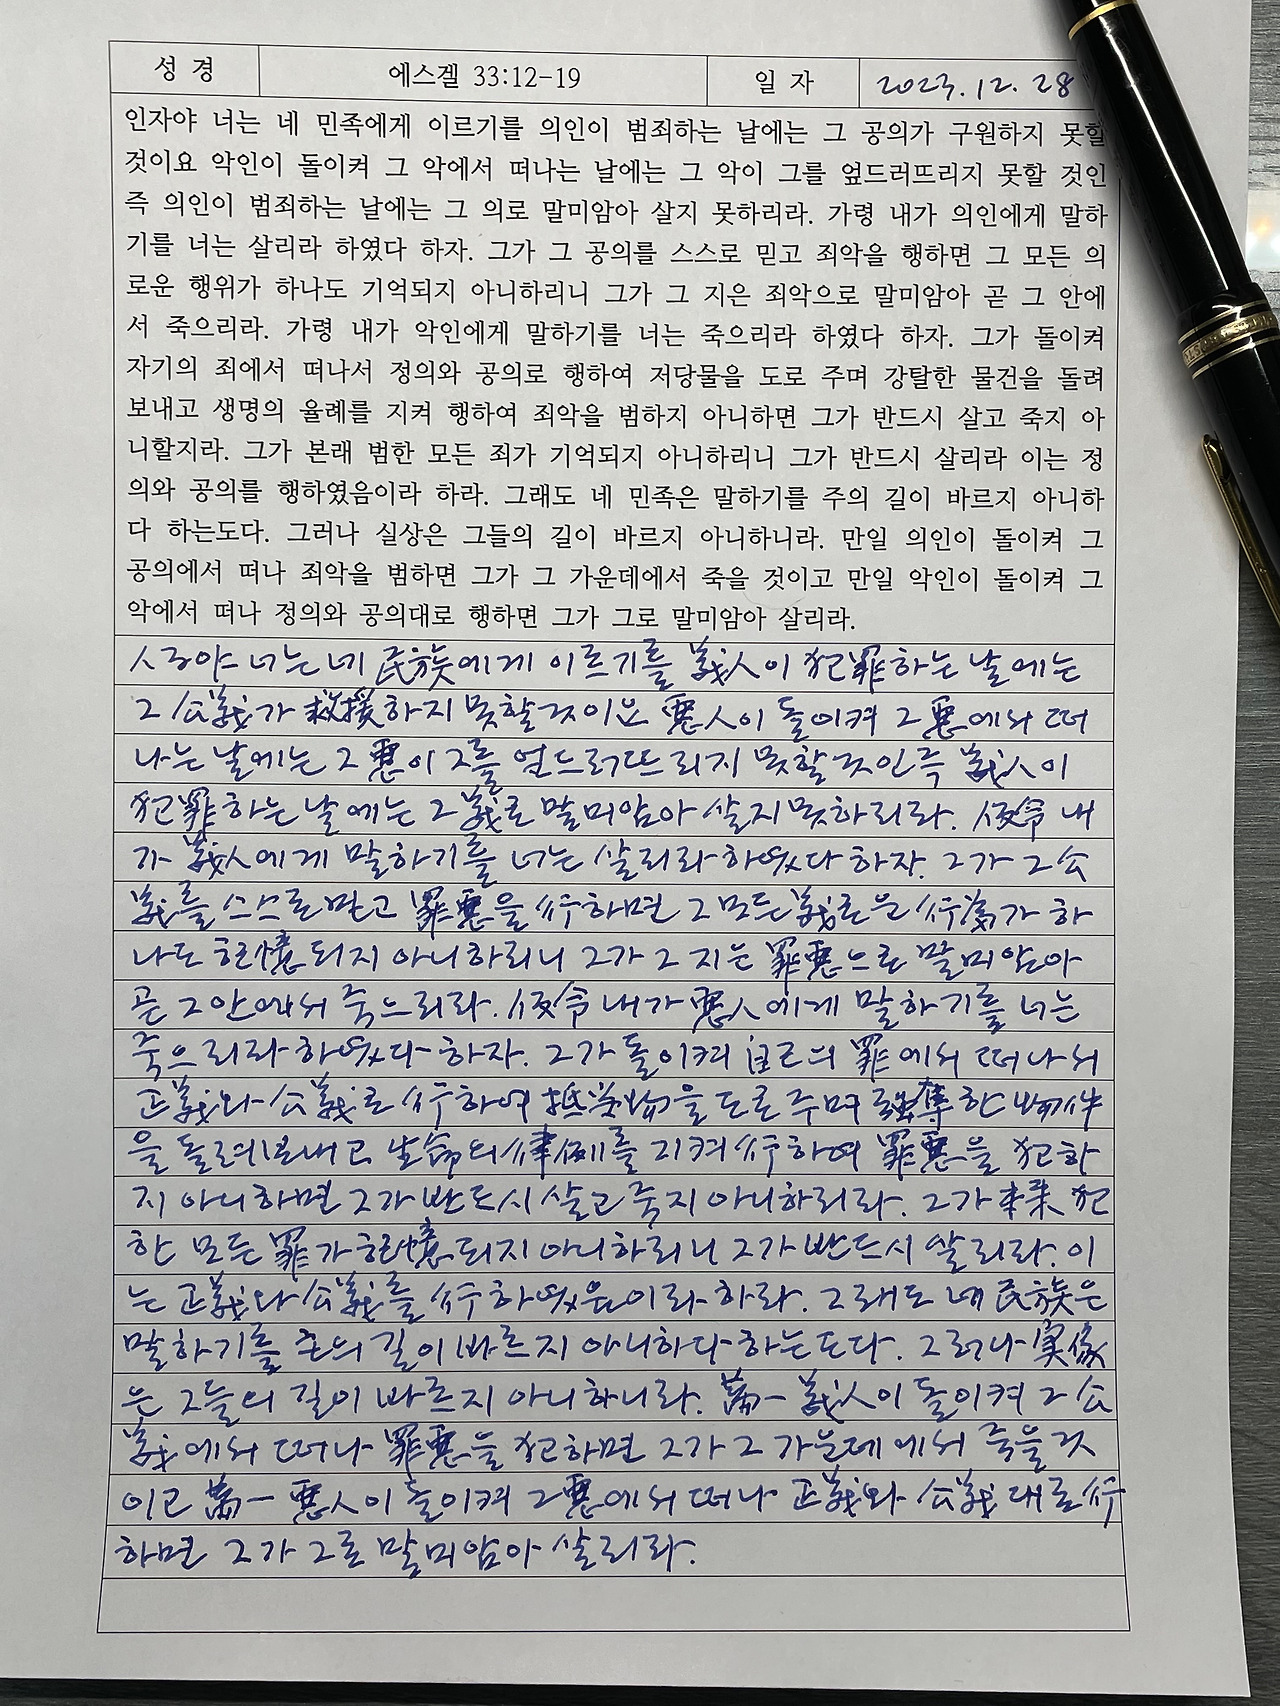 성 경 에스겔 33:12-19 일 자 2023.12.28
인자야 너는 네 민족에게 이르기를 의인이 범죄하는 날에는 그 공의가 구원하지 못할
것이요 악인이 돌이켜 그 악에서 떠나는 날에는 그 악이 그를 엎드러뜨리지 못할 것인
즉 의인이 범죄하는 날에는 그 의로 말미암아 살지 못하리라. 가령 내가 의인에게 말하
기를 너는 살리라 하였다 하자. 그가 그 공의를 스스로 믿고 죄악을 행하면 그 모든 의
로운 행위가 하나도 기억되지 아니하리니 그가 그 지은 죄악으로 말미암아 곧 그 안에
서 죽으리라. 가령 내가 악인에게 말하기를 너는 죽으리라 하였다 하자. 그가 돌이켜
자기의 죄에서 떠나서 정의와 공의로 행하여 저당물을 도로 주며 강탈한 물건을 돌려
보내고 생명의 율례를 지켜 행하여 죄악을 범하지 아니하면 그가 반드시 살고 죽지 아
니할지라. 그가 본래 범한 모든 죄가 기억되지 아니하리니 그가 반드시 살리라 이는 정
의와 공의를 행하였음이라 하라. 그래도 네 민족은 말하기를 주의 길이 바르지 아니하
다 하는도다. 그러나 실상은 그들의 길이 바르지 아니하니라. 만일 의인이 돌이켜 그
공의에서 떠나 죄악을 범하면 그가 그 가운데에서 죽을 것이고 만일 악인이 돌이켜 그
악에서 떠나 정의와 공의대로 행하면 그가 그로 말미암아 살리라.
人子야 너는 네 民族에게 이르기를 義人이 犯罪하는 날에는
그 公義가 救援하지 못할 것이요 惡人이 돌이켜 그 惡에서 떠
나는 날에는 그 惡이 그를 엎드러뜨리지 못할 것인즉 義人이
犯罪하는 날에는 그 義로 말미암아 살지 못하리라. 假令 내
가 義人에게 말하기를 너는 살리라 하였다 하자. 그가 그 公
義를 스스로 믿고 罪惡을 行하면 그 모든 義로운 行為가 하
나도 記憶되지 아니하리니 그가 그 지은 罪惡으로 말미암아
곧 그 안에서 죽으리라. 假令 내가 惡人에게 말하기를 너는
죽으리라 하였다 하자. 그가 돌이켜 自己의 罪에서 떠나서
正義와 公義로 行하여 抵当物을 도로 주며 强奪한 物件
을 돌려보내고 生命의 律例를 지켜 行하여 罪惡을 犯하
지 아니하면 그가 반드시 살고 죽지 아니하리라. 그가 本来 犯
한 모든 罪가 記憶되지 아니하리니 그가 반드시 살리라. 이
는 正義와 公義를 行하였음이라 하라. 그래도 네 民族은
말하기를 주의 길이 바르지 아니하다 하는도다. 그러나 実像
은 그들의 길이 바르지 아니하니라. 萬一 義人이 돌이켜 그 公
義에서 떠나 罪惡을 犯하면 그가 그 가운데에서 죽을 것
이고 萬一 惡人이 돌이켜 그 惡에서 떠나 正義와 公義대로 行
하면 그가 그로 말미암아 살리라.